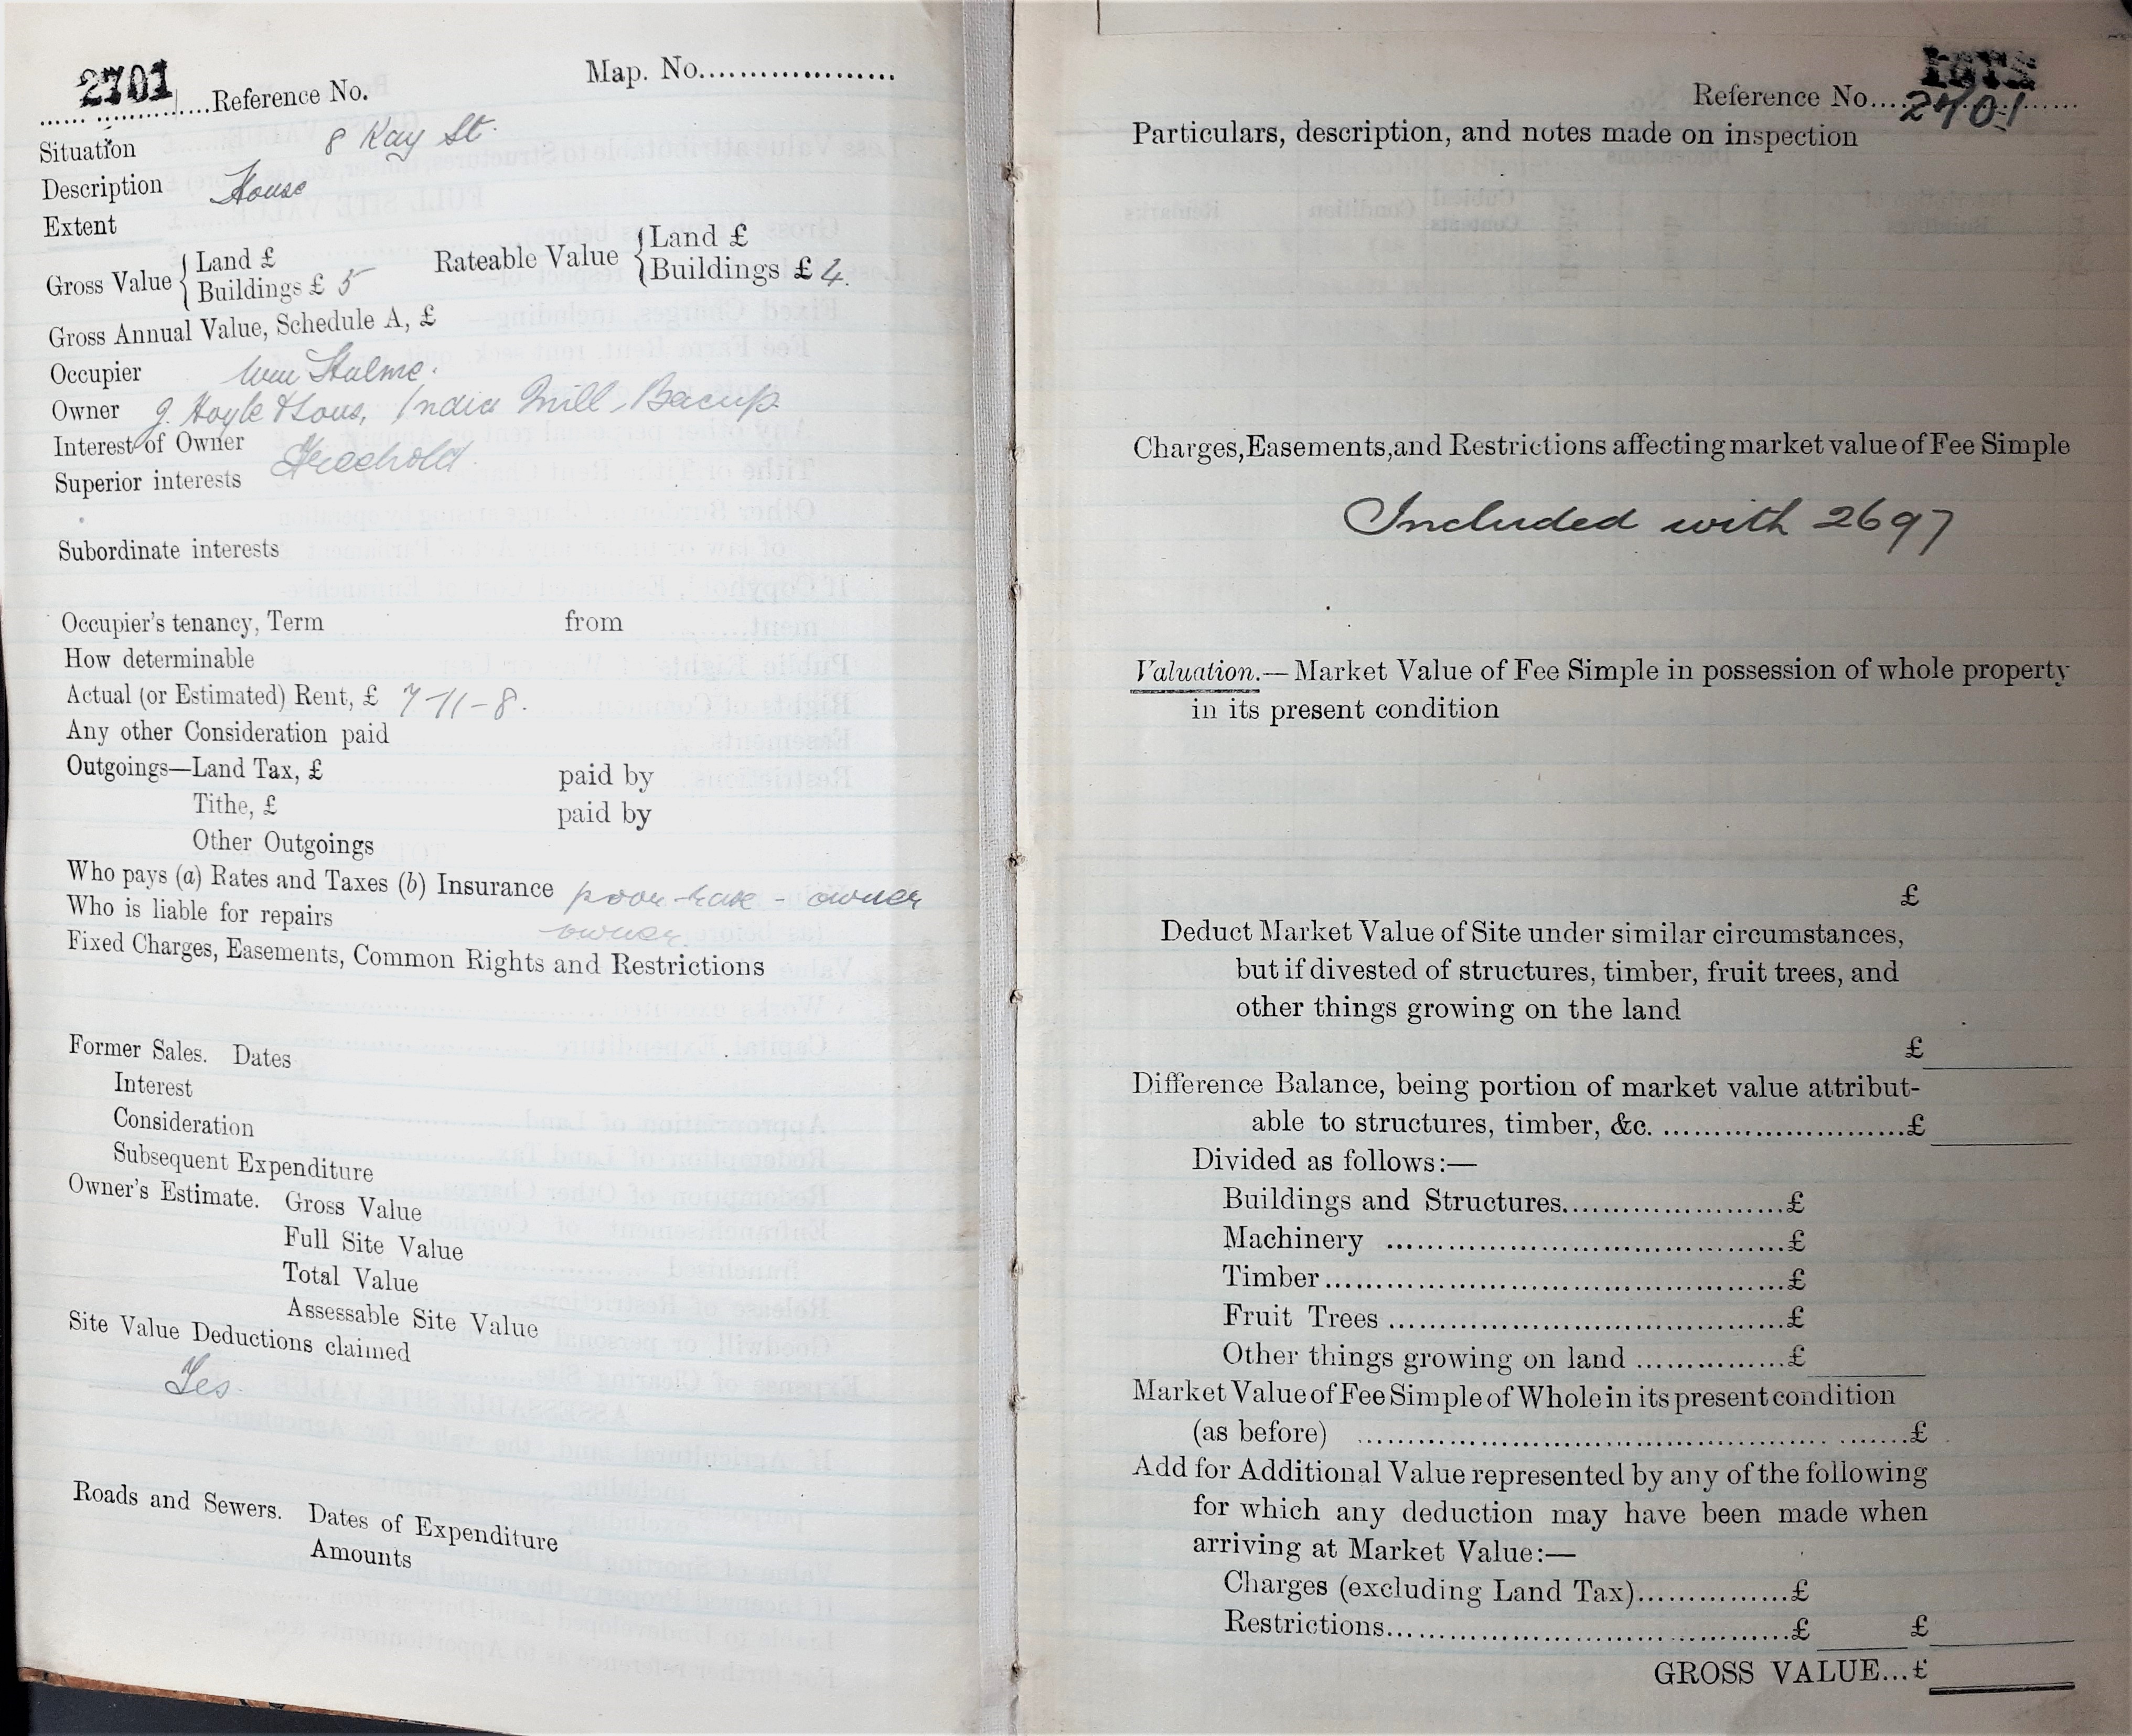 2701 ....Reference No.
Map. No....................
Situation 8 Kay St.
Description House
Extent
Gross Value { Land £
Buildings £ 5
Rateable Value { Land £
Buildings £ 4.
Gross Annual Value, Schedule A, £
Occupier Wm Hulme.
Owner J. Hoyle & Sons, India Mill, Bacup
Interest of Owner Freehold.
Superior interests
Subordinate interests
Occupier's tenancy, Term from
How determinable
Actual (or Estimated) Rent, £ 7-11-8.
Any other Consideration paid
Outgoings—Land Tax, £ paid by
Tithe, £ paid by
Other Outgoings
Who pays (a) Rates and Taxes (b) Insurance poor-rate - owner
Who is liable for repairs owner.
Fixed Charges, Easements, Common Rights and Restrictions
Former Sales. Dates
Interest
Consideration
Subsequent Expenditure
Owner's Estimate. Gross Value
Full Site Value
Total Value
Assessable Site Value
Site Value Deductions claimed
Yes.
Roads and Sewers. Dates of Expenditure
Amounts
Reference No.... 2701
Particulars, description, and notes made on inspection
Charges, Easements, and Restrictions affecting market value of Fee Simple
Included with 2697
Valuation.—Market Value of Fee Simple in possession of whole property
in its present condition
£
Deduct Market Value of Site under similar circumstances,
but if divested of structures, timber, fruit trees, and
other things growing on the land
£
Difference Balance, being portion of market value attribut-
able to structures, timber, &c. ..........................£
Divided as follows:—
Buildings and Structures.......................£
Machinery .........................................£
Timber...............................................£
Fruit Trees .........................................£
Other things growing on land ................£
Market Value of Fee Simple of Whole in its present condition
(as before) .......................................................£
Add for Additional Value represented by any of the following
for which any deduction may have been made when
arriving at Market Value:—
Charges (excluding Land Tax)................£
Restrictions.........................................£ £
GROSS VALUE...£